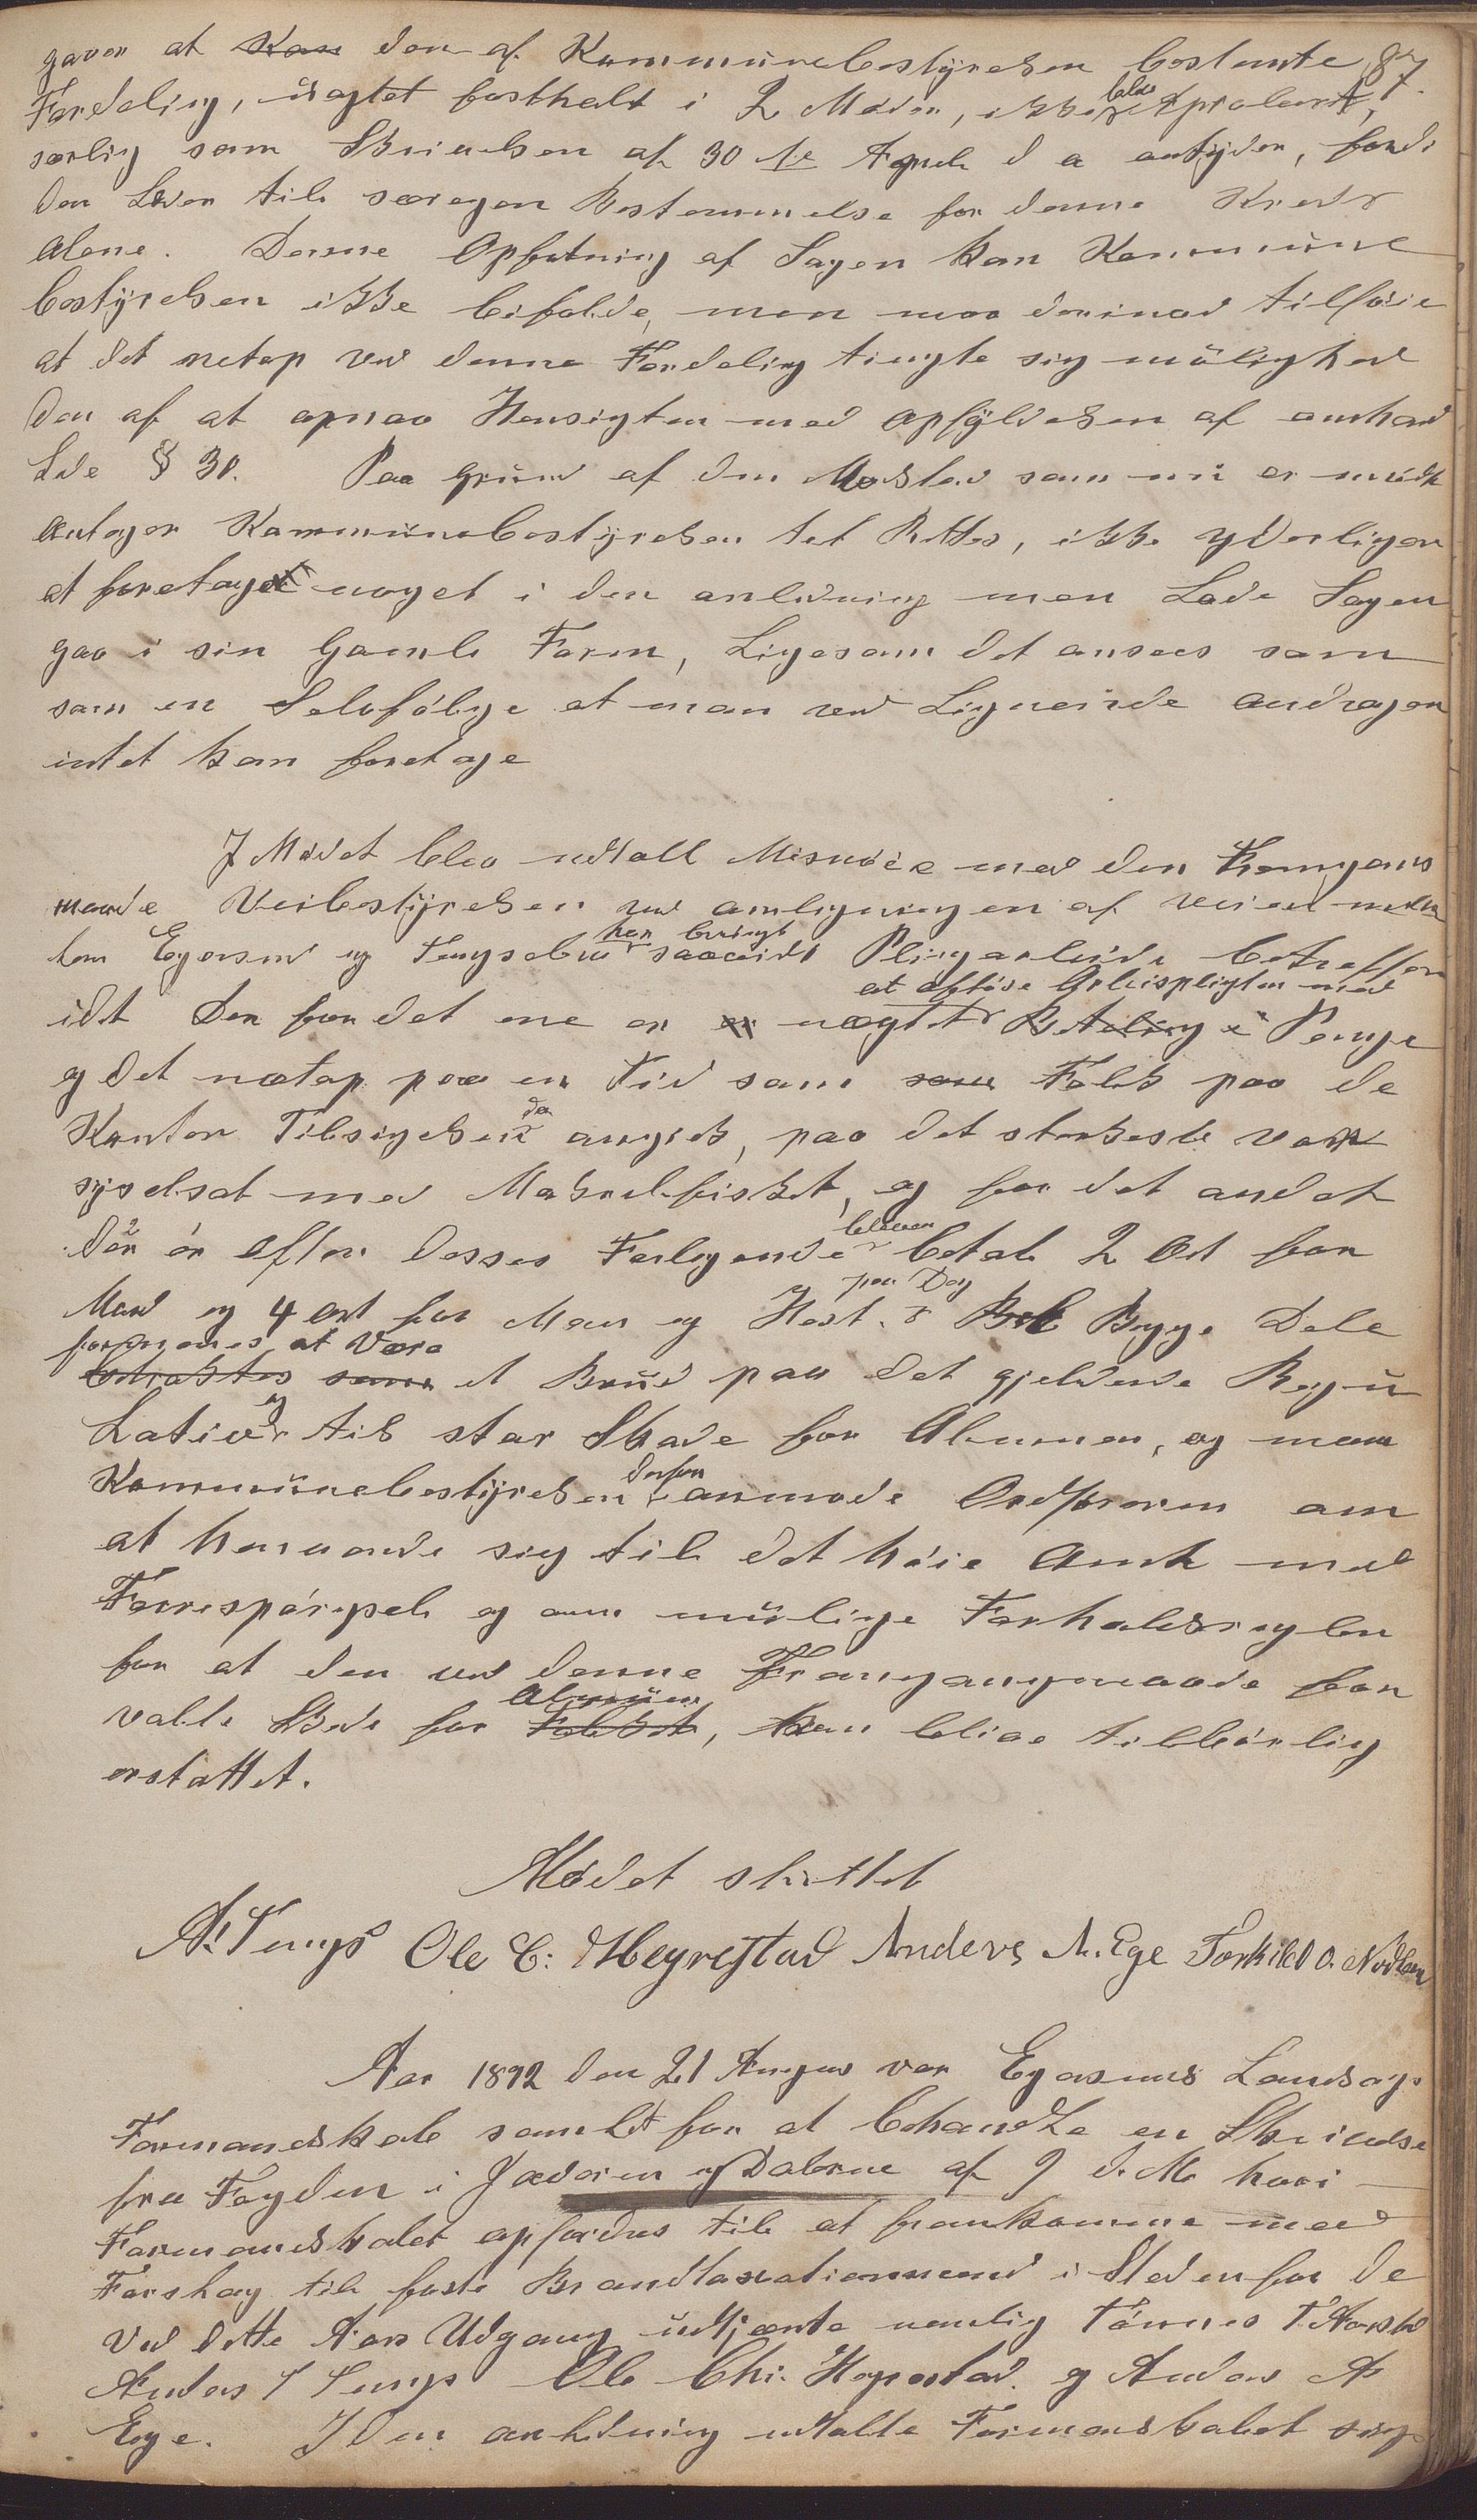 87.
gaven at Kan den af Kommunebestyrelsen bestemte
Fordeling, uagtet fastholdt i 2 Møder, ikke blev Aproberet,
særlig som Skrivelsen af 30 te April d a antyder, fordi
den Loven til særegen Bestemmelse for denne Kreds
alene. Denne Opfatning af Sagen kan Kommune
bestyrelsen ikke bifalde, men maa derimod tilføie
at det netop ved denne Fordeling tingte sig mulighed
den af at opnaa Hensigten med opfyldelsen af omhand
lede § 30. Paa grund af den Modstand som nu er mødt
antager Kommunebestyrelsen det Rettes, ikke yderligere
at foretaget noget i den anledning men Lade Sagen
gaa i sin Gamle Form, Ligesom det ansees som
som en Selvfølge at man ved Lignende Andragen
intet kan foretage
I Mødet blev udtalt Misnøie med den Fremgans
maade Veibestyrelsen ved omligningen af veien mellem
lem Egersund og Tengsebro har brugt saavidt Pligarbeide betreffen
idt Der for det ene er er nægtet at afløse Arbeispligten med Betaling i Penge
og det netop paa en Tid som som Folk paa de
Kanter Tilsigelsen da angik, paa det sterkeste var
sysselsat med Makrelfisket, og for det andet
der ør efter desses Forlydende bleven betalt 2 Ort for
Mand og 4 ort for Man og Hest. pr Dag Beg Begge Dele
formenes at være
betragtes som et Brud paa det gjeldende Regu
Lativ og til stor Skade for Almuen, og maa
Kommunebestyrelsen derfor anmode Ordføreren om
at henvende sig til det høie Amt med
Forespørgsel og om mulige Forholdsregler
for at den ved denne Fremgangsmaade for
valte Skade for Folket Almuen, kan blive tilbørlig
erstattet.
Mødet sluttet
A. Tengs Ole C: Hegrestad Anders A. Ege Torkild O. Nodland
Aar 1892 den 21 August var Egersunds Landsogs
Formandskab samlet for at behandle en Skrivelse
fra Fogden i Jæderen og Dalerne af 9 d. M. hvori
Formandskabet opfordres til at fremkomme med
Forslag til faste Brandtaxationsmænd i Stedenfor de
ved dette Aars Udgang udtjente nemlig Tønnes T.
Anders T Tengs Ole Chr. Hegrestad. og Anders A
Ege. I den anledning udtalte Formandskabet sig